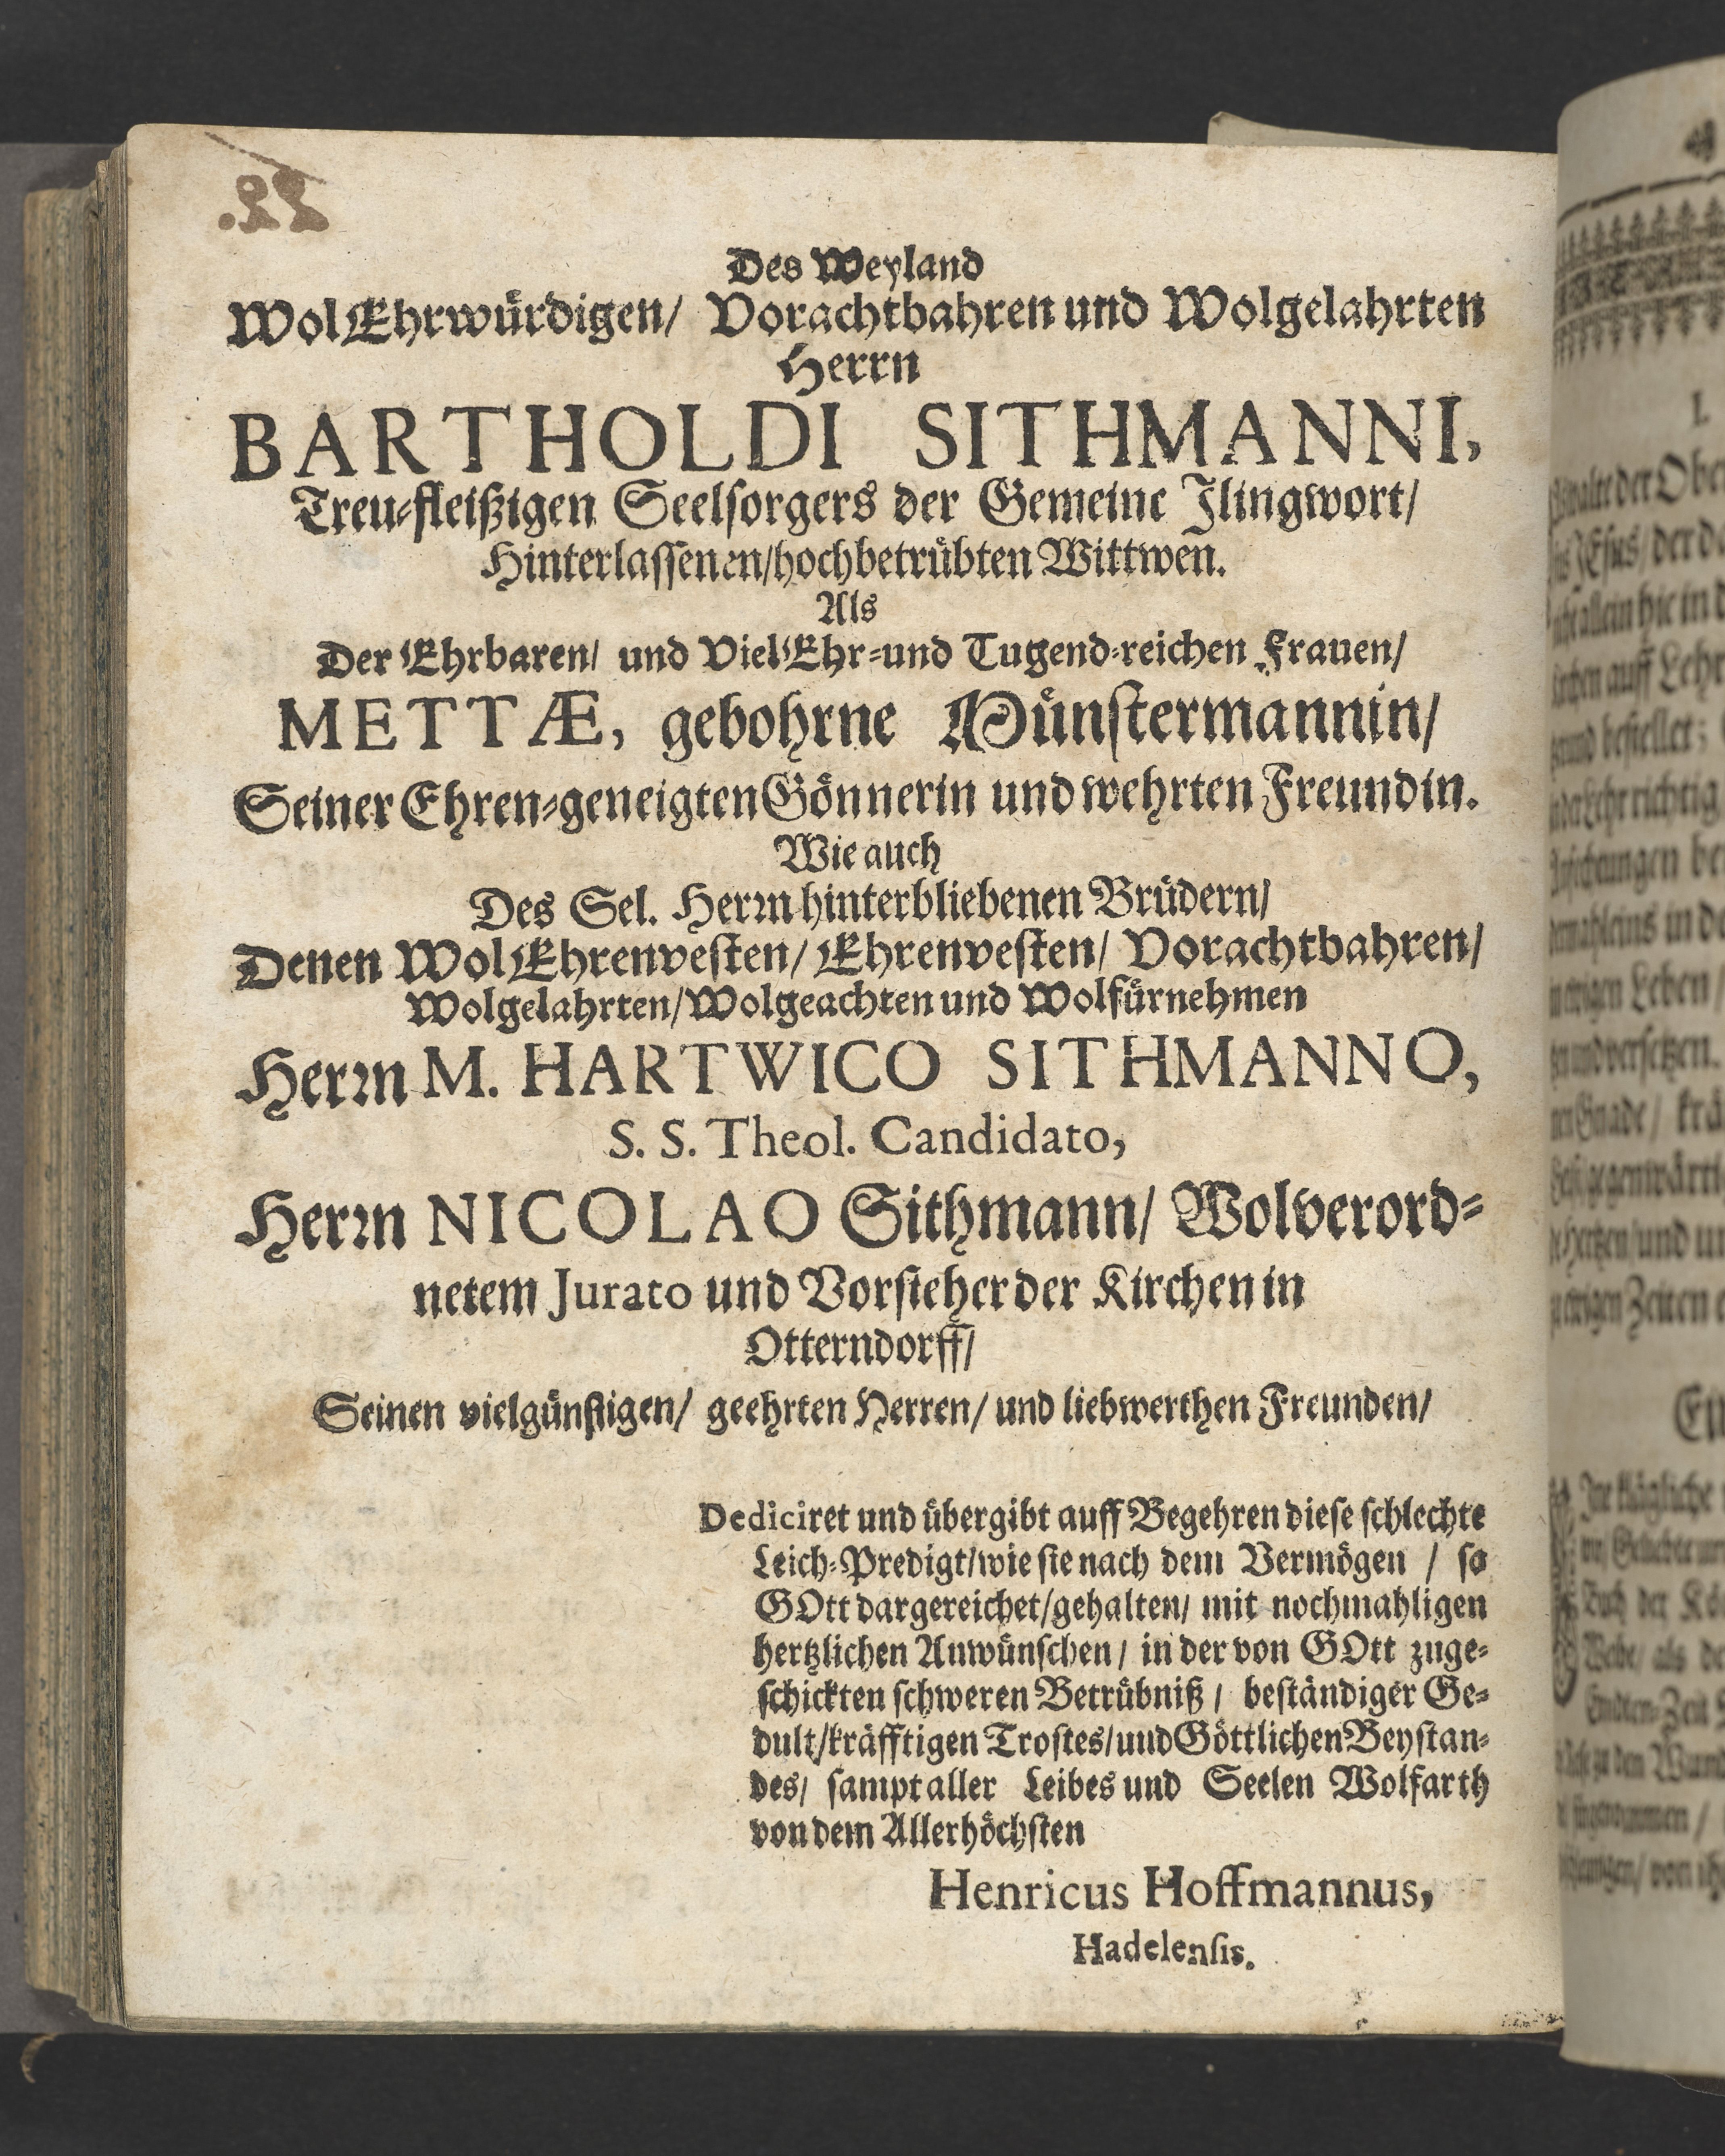 22.
Des Weyland
WolEhrwürdigen/ Vorachtbahren und Wolgelahrten
Herrn
BARTHOLDI SITHMANNI,
Treu-fleißigen Seelsorgers der Gemeine Jlingwort/
Hinterlassenen/hochbetrübten Wittwen.
Als
Der Ehrbaren/ und VielEhr-und Tugend-reichen Frauen/
METTÆ, gebohrne Münstermannin/
Seiner Ehren-geneigten Gönnerin und wehrten Freundin.
Wie auch
Des Sel. Herrn hinterbliebenen Brüdern/
Denen WolEhrenvesten/ Ehrenvesten/ Vorachtbahren/
Wolgelahrten/Wolgeachten und Wolfürnehmen
Herrn M. HARTWICO SITHMANNO,
S. S. Theol. Candidato,
Herrn NICOLAO Sithmann/ Wolverord-
netem Jurato und Vorsteher der Kirchen in
Otterndorff/
Seinen vielgünstigen/ geehrten Herren/ und liebwerthen Freunden/
Dediciret und übergibt auff Begehren diese schlechte
Leich-Predigt/wie sie nach dem Vermögen / so
GOtt dargereichet/gehalten/ mit nochmahligen
hertzlichen Anwünschen/ in der von GOtt zuge-
schickten schweren Betrübniß / beständiger Ge-
dult/kräfftigen Trostes/und Göttlichen Beystan-
des/ sampt aller Leibes und Seelen Wolfarth
von dem Allerhöchsten
Henricus Hoffmannus,
Hadelensis.
I.
der Obe
JEsus/ der d
allein hie in d
auff Lehr
bestellet;
richtig
Leben/
und versetzen.
Gnade/ krä
gegenwärti
Hertzen/und un
Zeiten
klägliche
Buch der Kö
als de
Zeit
zu den Wund
von ih